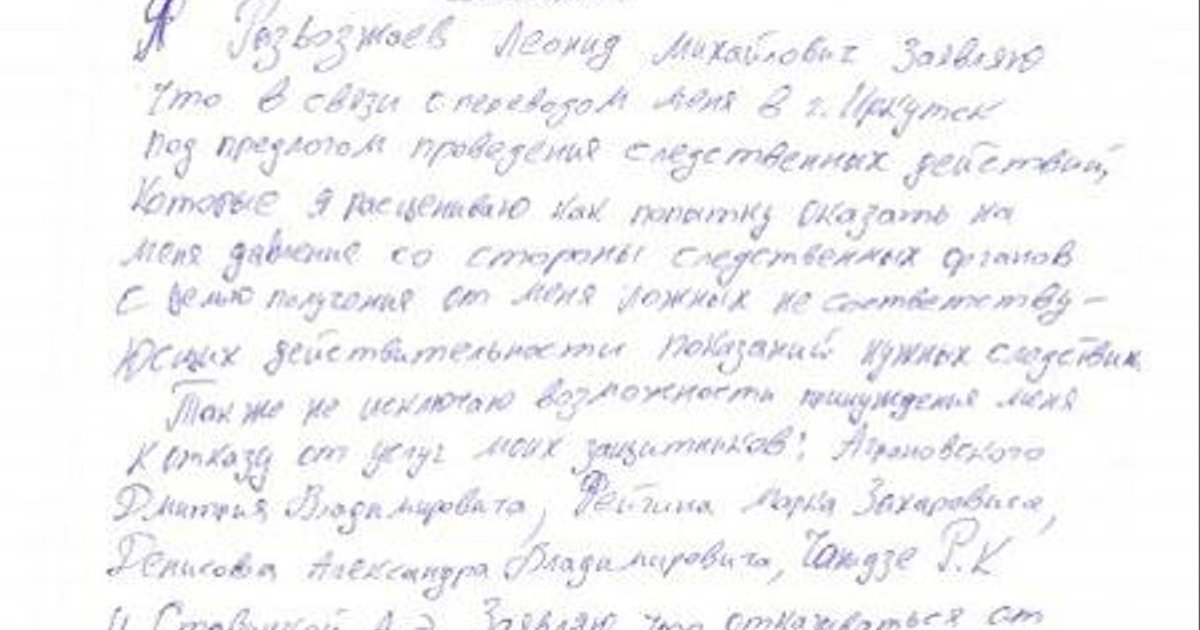 Я Развозжаев Леонид Михайлович Заявляю
Что в связи с переводом меня в г. Иркутск
под предлогом проведения следственных действий,
Которые я расцениваю как попытку оказать на
меня давление со стороны следственных органов
с целью получения от меня ложных не соответству-
Ющих действительности показаний нужных следствию
Также не исключаю возможности принуждения меня
к отказу от услуг моих защитников: Аграновского
Дмитрия Владимировича, Фейгина Марка Захаровича,
Денисова Александра Владимировича, Чанидзе Р.К
И Ставицкой А.Э. Заявляю что отказываться от